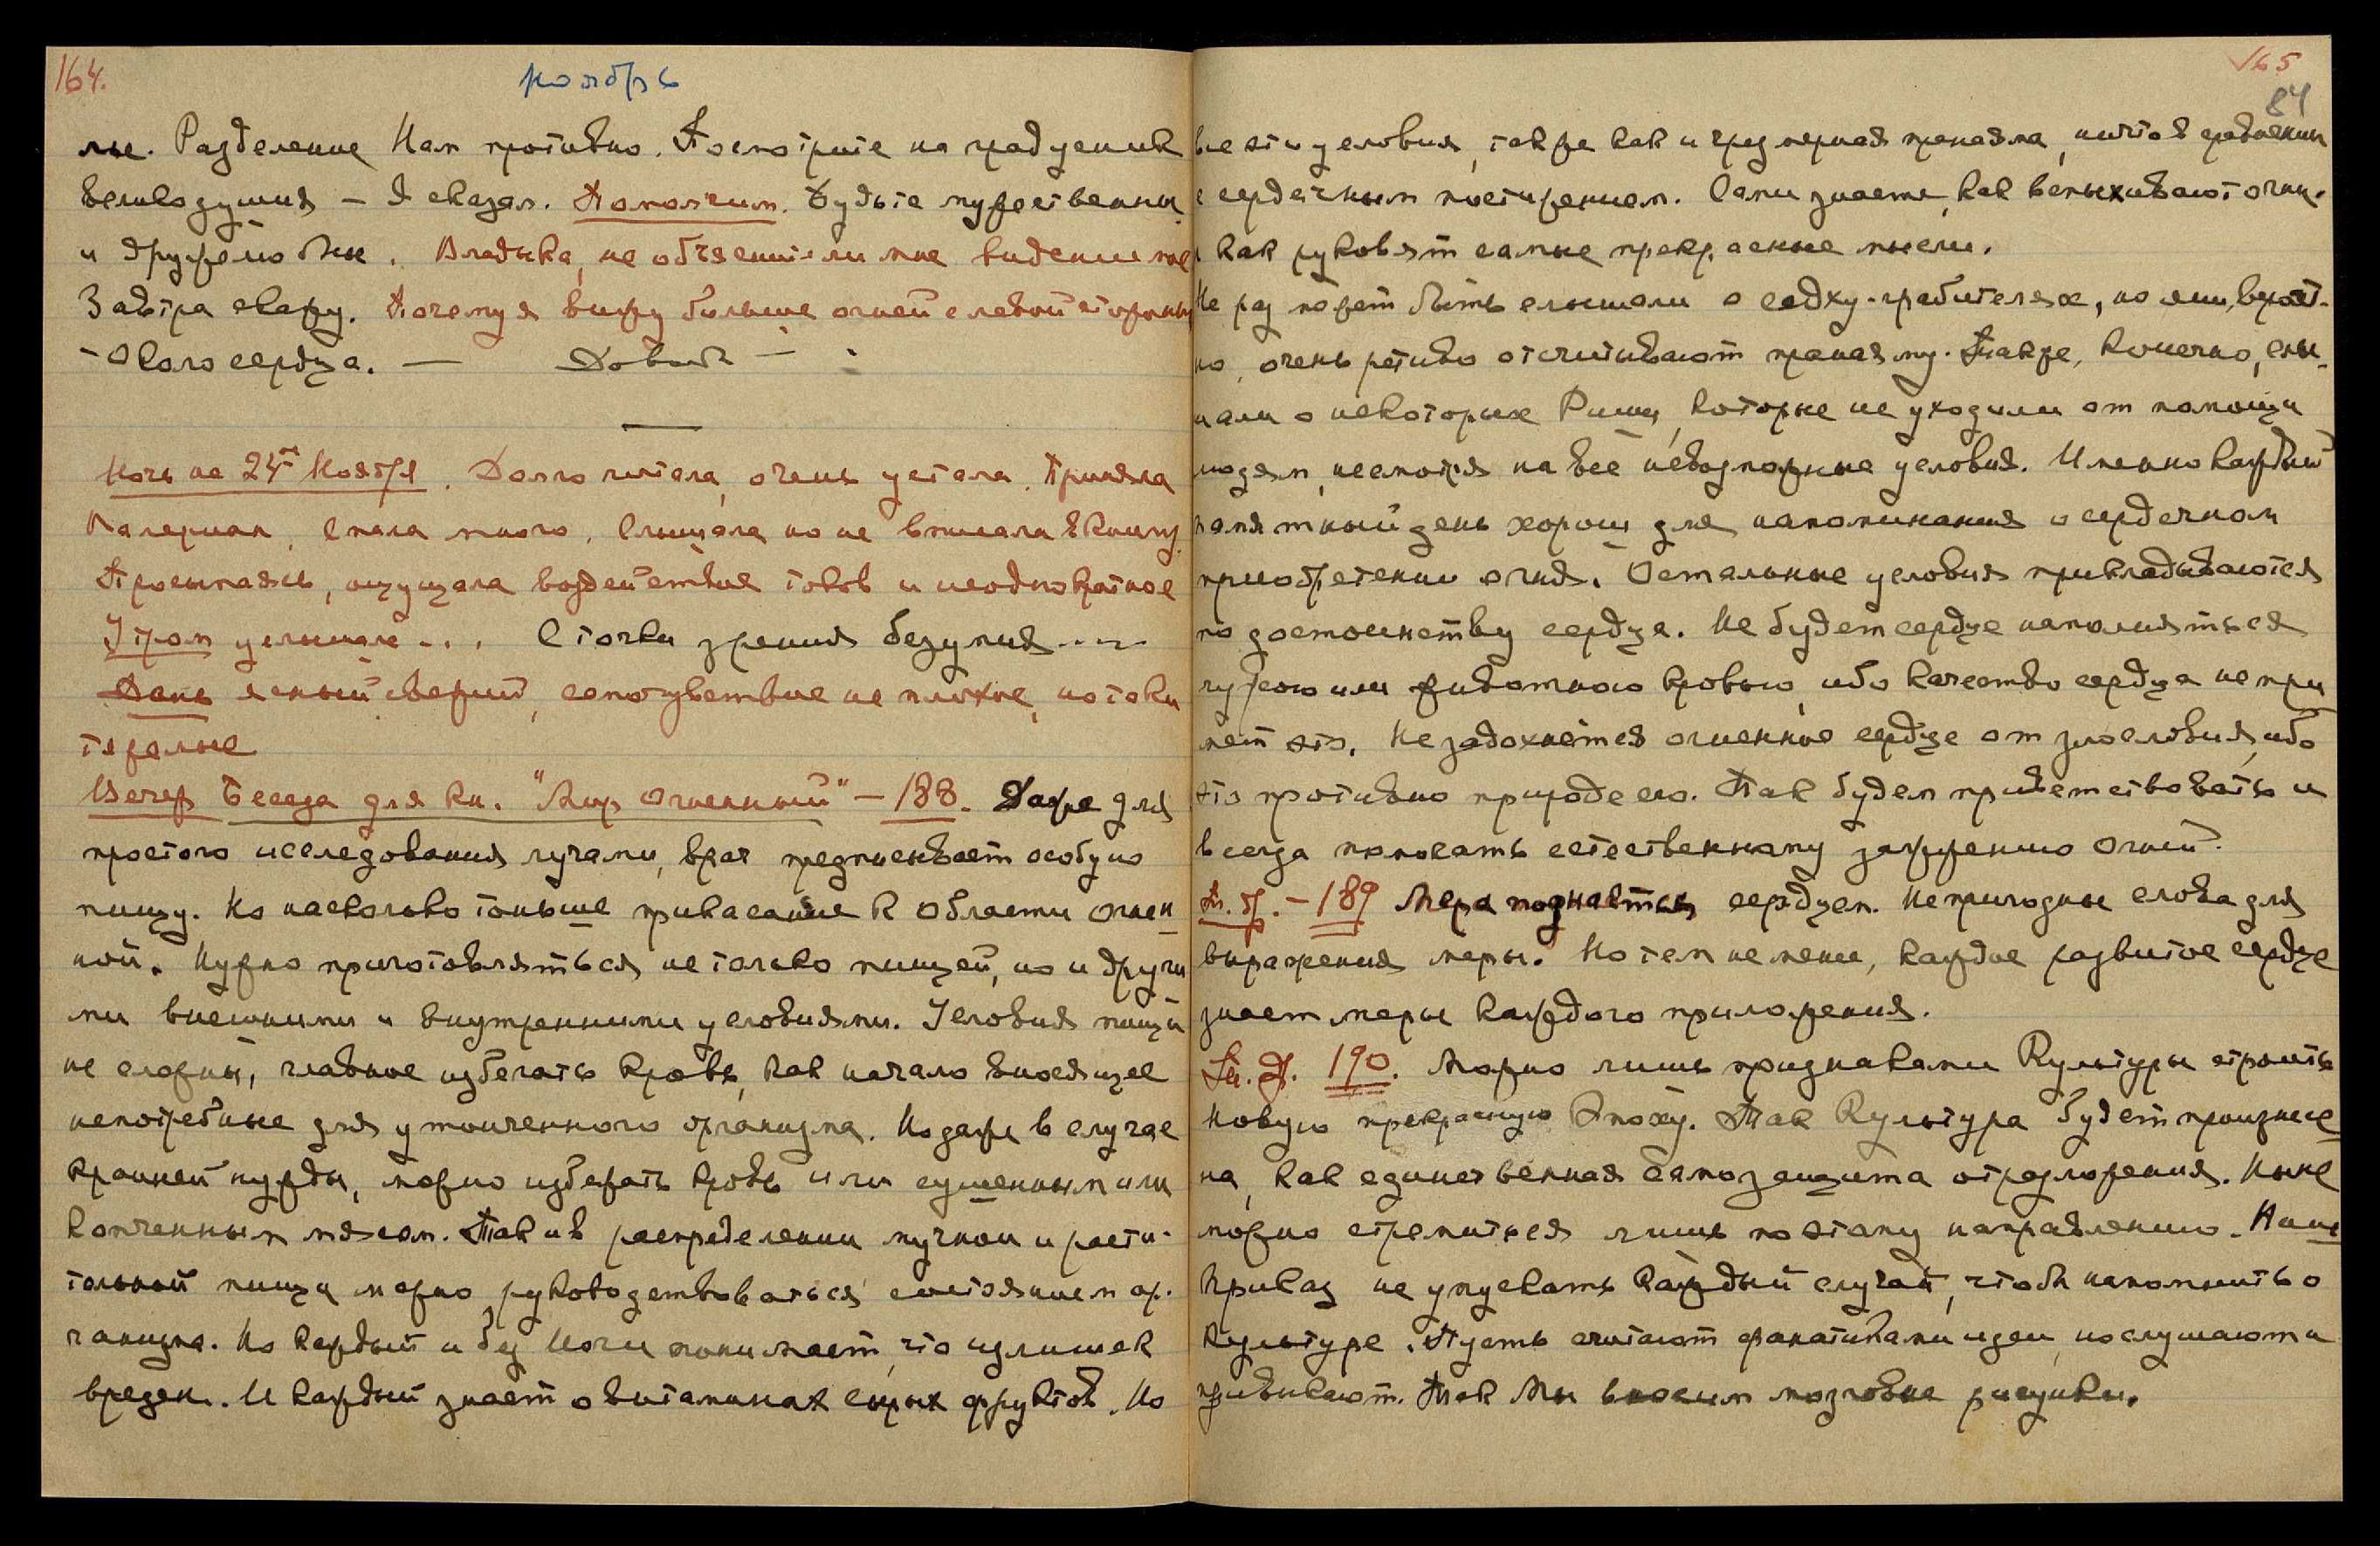 164.
ноябрь
мы. Разделение Нам противно. Посмотрите на градусник
великодушия – Я сказал. Помолчим. Будьте мужественны
и дружелюбны. Владыка, не объясните ли мне видение мое
Завтра скажу. Почему я вижу больше огней с левой стороны
– Около сердца. — Довольно —
Ночь на 24ое Ноября. Долго читала, очень устала. Приняла
Валериан, спала много. Слышала но не вписала в книгу.
Просыпаясь, ощущала воздействия токов и неоднократное
Утром услышала... С точки зрения безумия....
День ясный свежий, самочувствие не плохое, но токи
тяжелые
Вечер Беседа для кн. "Мир Огненный" – 188. Даже для
простого исследования лучами, врач предписывает особую
пищу. Но насколько тоньше прикасание к области огнен
ной. Нужно приготовляться не только пищей, но и други
ми внешними и внутренними условиями. Условия пищи
не сложны, главное избегать кровь, как начало вносящее
непотребные для утонченного организма. Но даже в случае
крайней нужды, можно избежать кровь или сушенным или
копченным мясом. Так и в распределении мучной и расти-
тельной пищи можно руководствоваться состоянием ор-
ганизма. Но каждый и без Йоги понимает, что излишек
вреден. И каждый знает о витаминах сырых фруктов. Но
165
84
все эти условия, также как и чрезмерная пранаяма, ничто в сравнении
с сердечным постижением. Сами знаете, как вспыхивают огни,
и как руководят самые прекрасные мысли.
Не раз может быть слышали о садху-грабителях, но они, вероят-
но, очень ретиво отсчитывают пранаяму. Также, конечно, слы-
шали о некоторых Риши, которые не уходили от помощи
людям, несмотря на все невозможные условия. Именно каждый
памятный день хорош для напоминания о сердечном
приобретении огня. Остальные условия прикладываются
по достоинству сердца. Не будет сердце наполняться
чужою или животною кровью, ибо качество сердца не при
мет это. Не задохнется огненное сердце от злословия, ибо
это противно природе его. Так будем приветствовать и
всегда помогать естественному зажжению Огней.
– 189 Мера познается сердцем. Непригодны слова для
выражения меры. Но тем не менее, каждое развитое сердце
знает меры каждого приложения.
190. Можно лишь признаками Культуры строить
новую прекрасную Эпоху. Так Культура будет произнесе
на, как единственная самозащита от разложения. Ныне
можно стремиться лишь по этому направлению. Наш
приказ не упускать каждый случай, чтобы напомнить о
культуре. Пусть считают фанатиками идеи, но слушают и
привыкают. Так Мы вносим мозговые рисунки.